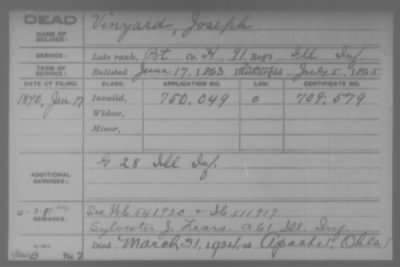 DEAD
NAME OF SOLDIER: Vinyard, Joseph
SERVICE: Late rank, Pvt Co. H, 91 Reg't Ill Inf
TERM OF SERVICE: Enlisted June 17, 1863 Discharged July 5, 1865
DATE OF FILING. CLASS. APPLICATION NO. LAW. CERTIFICATE NO.
1890, Jan 17 Invalid, 750.049 o 709.579
Widow,
Minor,
ADDITIONAL SERVICES: G 28 Ill Inf.
REMARKS: See 541920 & 511919
Sylvester J. a 61 Ill. Inf
Died March 31, 1921, at Apache, Okla